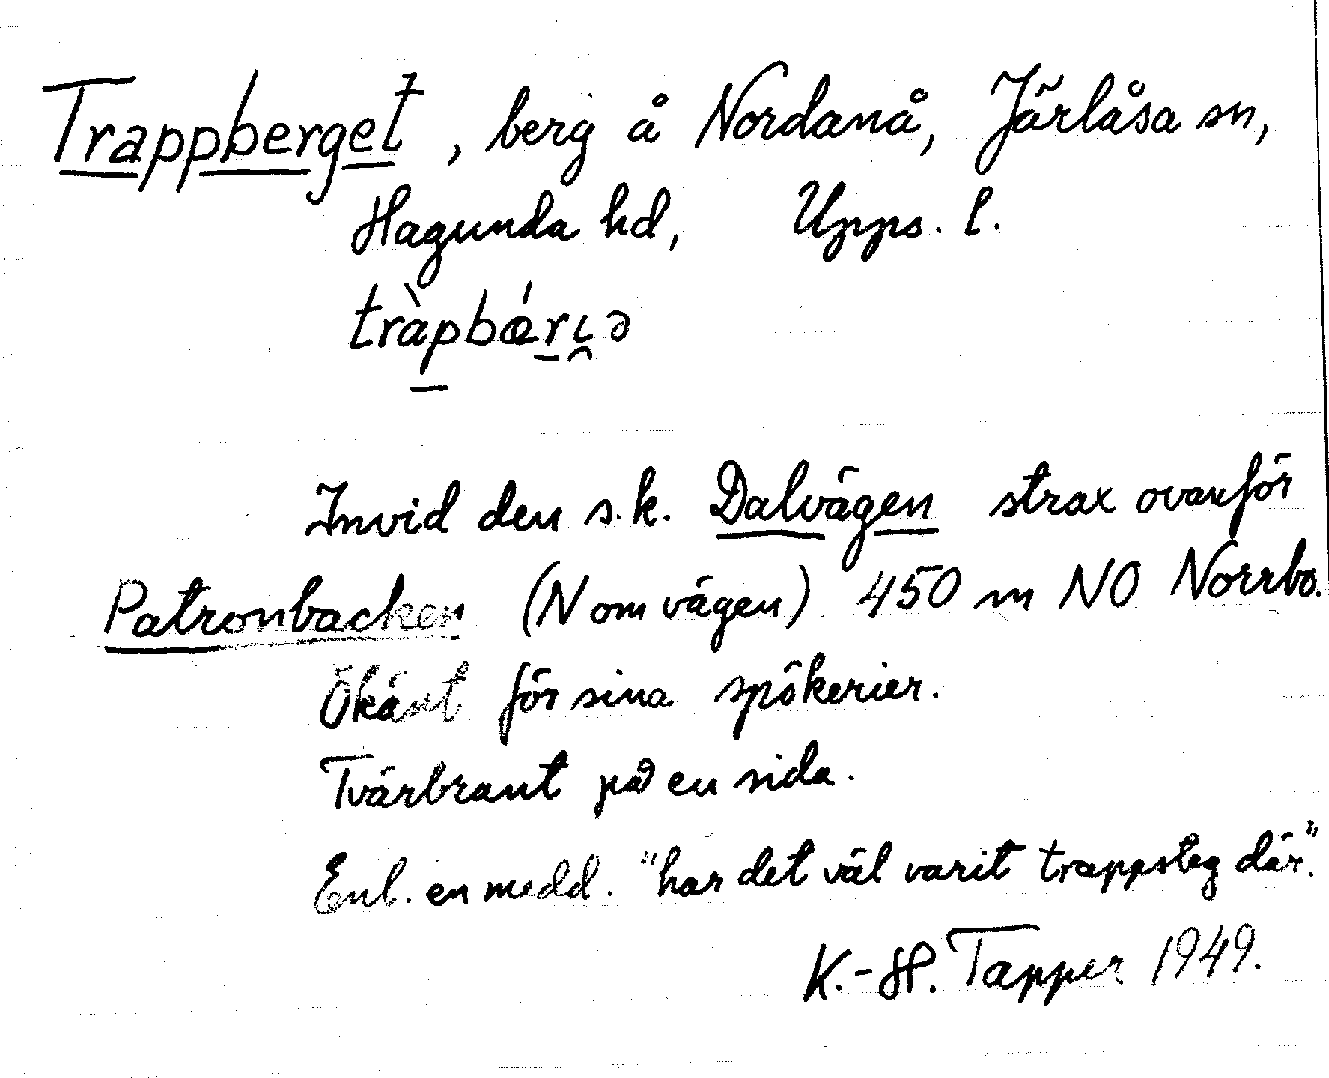 Trappberget, berg å Nordanå, Järlåsa sn,
Hagunda hd, Upps. l.
tràpbǽri̯ə
Invid den s.k. Dalvägen strax ovanför
Patronbacken (N om vägen) 450 m NO Norrbo.
Ökänt för sina spökerier.
Tvärbrant på en sida.
Enl. en medd. "har det väl varit trappsteg där."
K.-H. Tapper 1949.